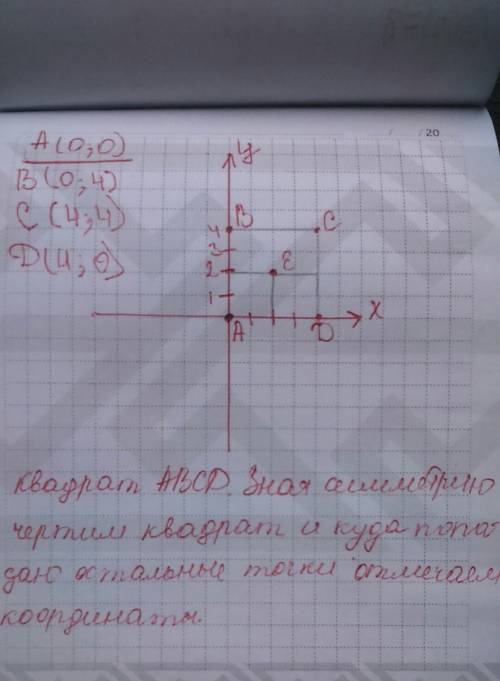 / /20
A(0;0)
B(0;4)
C(4;4)
D(4;0)
y
B
4
C
3
2
E
1
A
D
x
квадрат ABCD. Зная симметрично
чертим квадрат и куда попа-
даю остальные точки отмечаем
координаты.